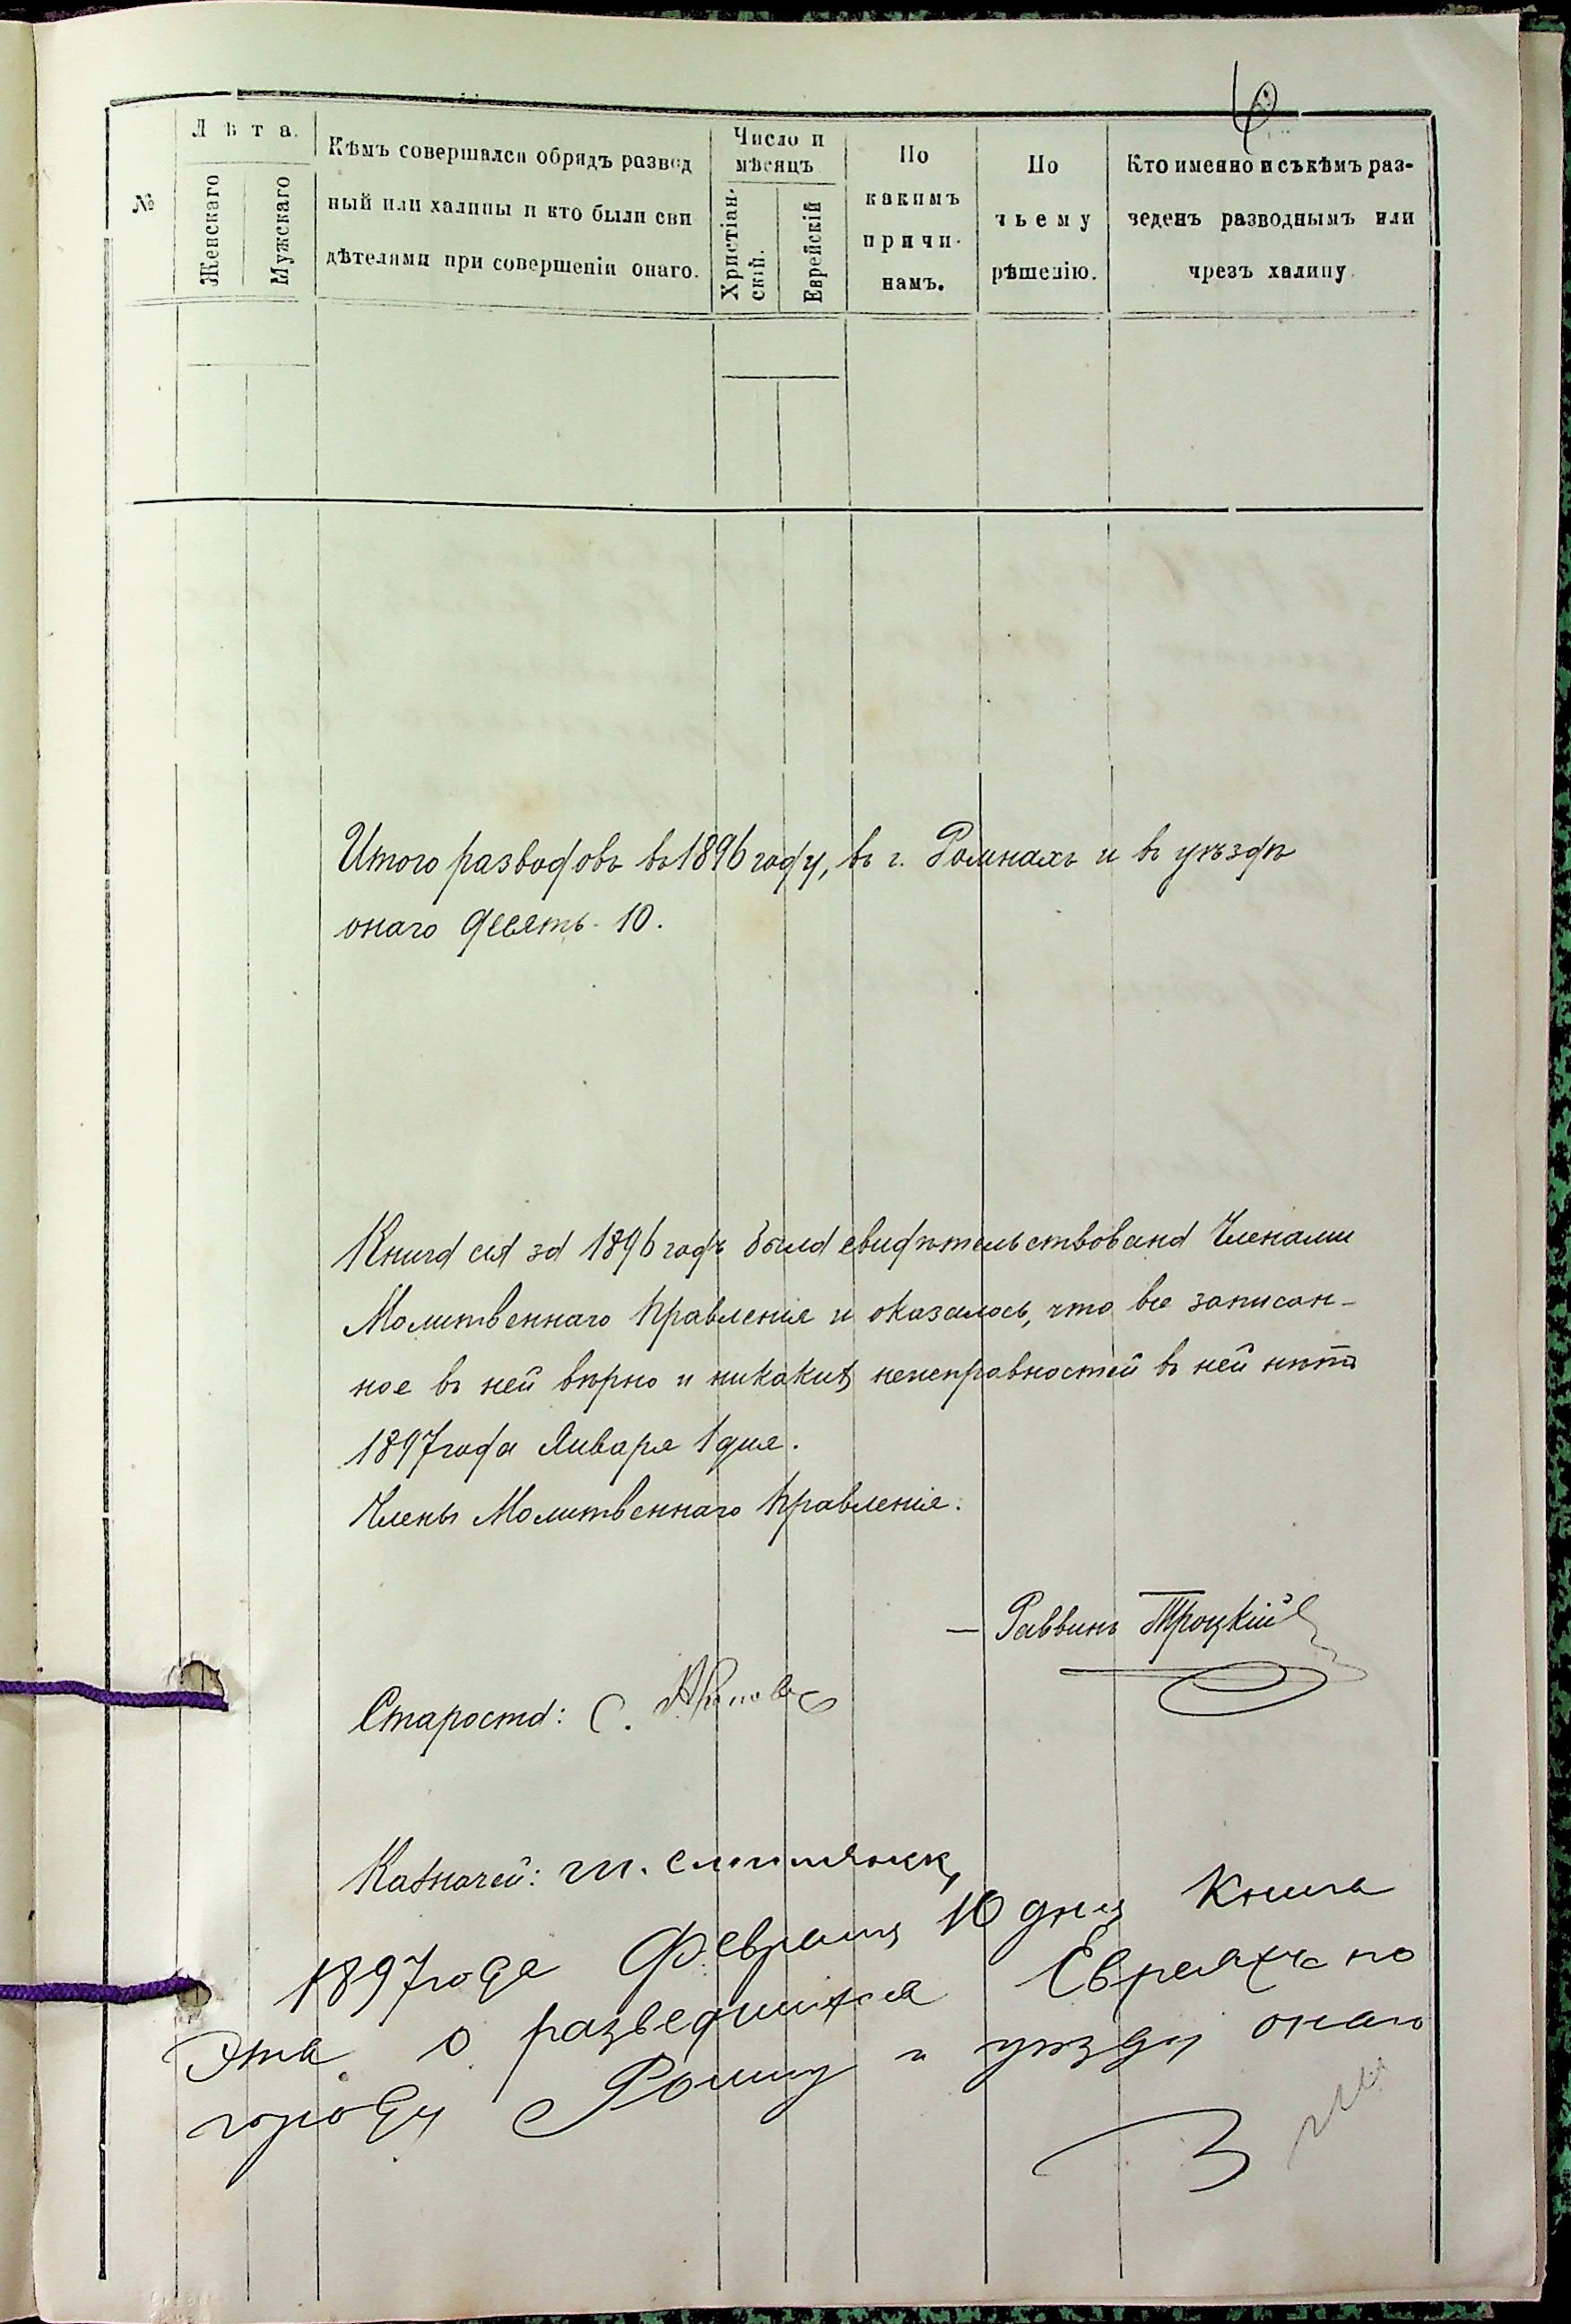 6
№
Лѣта.
Женскаго
Мужскаго
Кѣмъ совершался обрядъ развод
ный или халицы и кто были сви
дѣтелями при совершеніи онаго.
Число и
мѣсяцъ
Христіан-
скій.
Еврейскій
По
какимъ
причи-
намъ.
По
чьему
рѣшенію.
Кто именно и съ кѣмъ раз-
веденъ разводнымъ или
чрезъ халицу
Итого разводовъ въ 1896 году, въ г. Ромнахъ и въ уѣздѣ
онаго десять - 10.
Книга сія за 1896 годъ была свидѣтельствована Членами
Молитвеннаго Правленія и оказалось, что все записан-
ное въ ней вѣрно и никакихъ неисправностей въ ней нѣтъ
1897 года Января 1 дня.
Члены Молитвеннаго Правленія.
— Раввинъ Троцкій
Староста: С.
Казначей: Ш.
1897 года Февраля 10 дня Книга
Эта о разведшихся Евреяхъ по
городу Ромну и уѣзду онаго